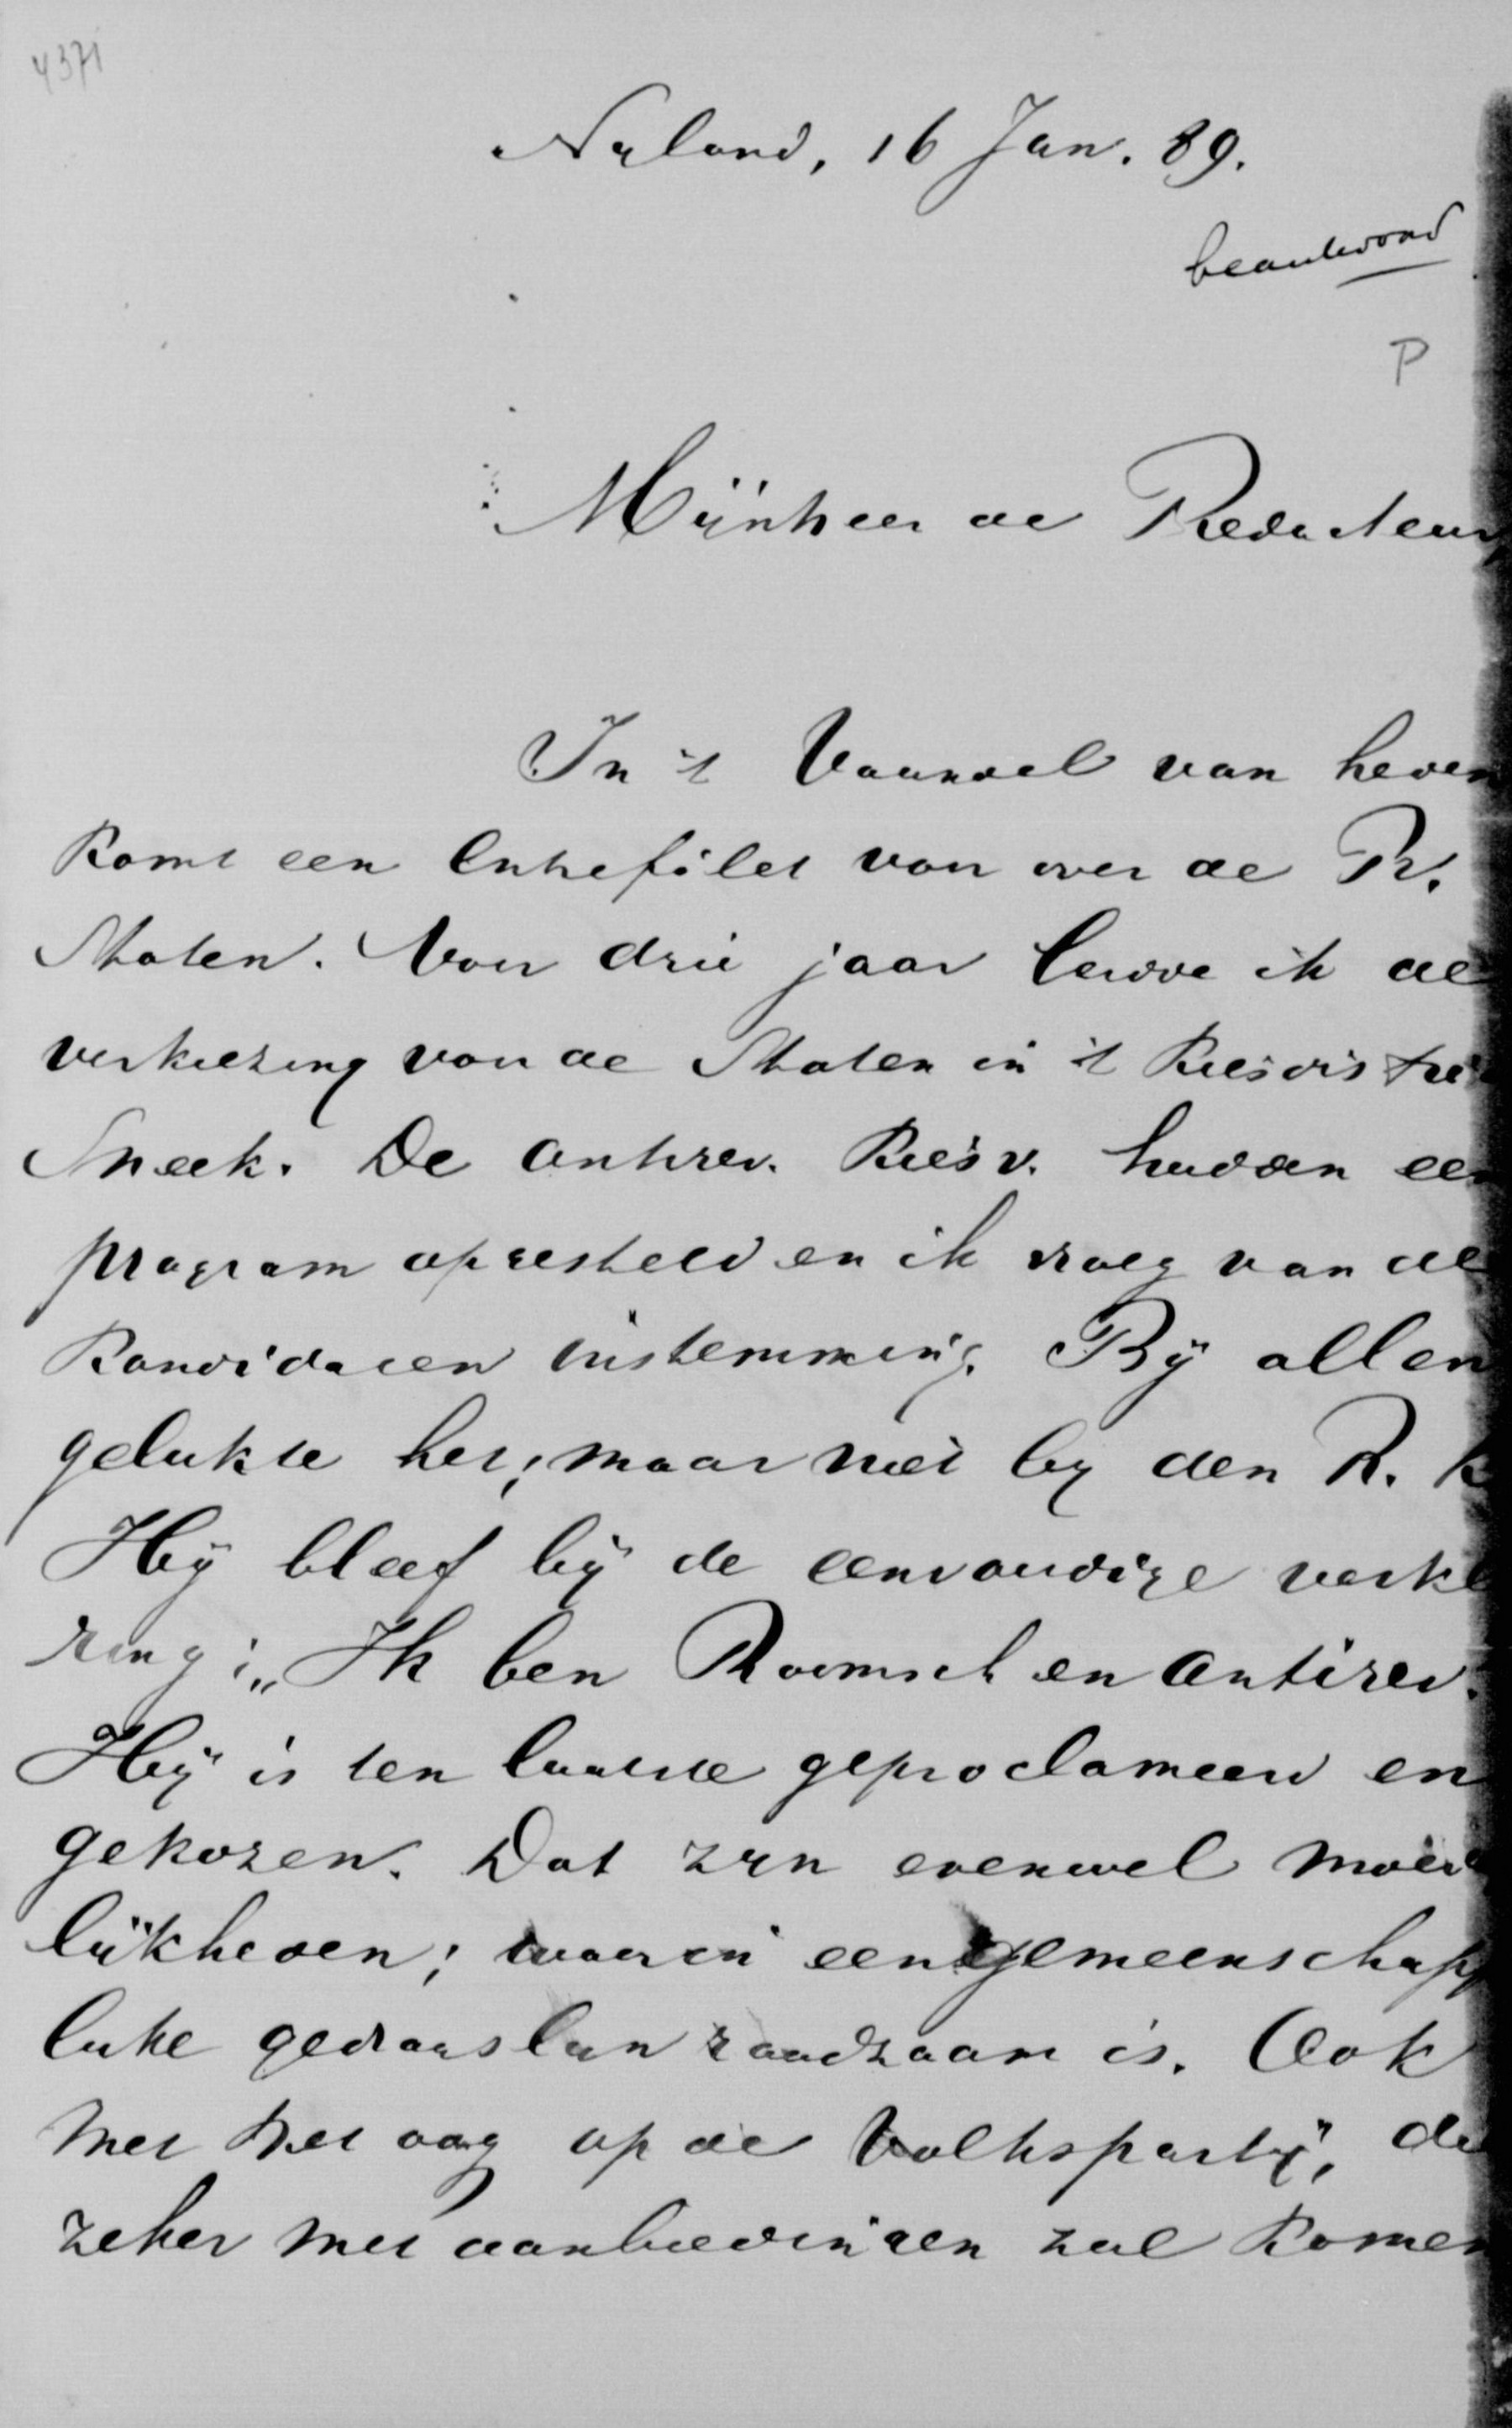 4371
Nyland, 16 Jan. 89.
beantwoord
P
Mijnheer de Redacteur,
In 't Vaandel van heden
komt een Entrefilet voor over de Pr.
Staten. Voor drie jaar leidde ik de
verkiezing voor de Staten in 't Kiesdistri
Sneek. De antirev. Kiesv. hadden een
program opgesteld en ik vroeg van de
Kandidaten instemming. Bij allen
gelukte het; maar niet by den R. K
Hij bleef bij de eenvoudige verkla
ring: „Ik ben Roomsch en antirev.
Hij is ten laatste geproclameerd en
gekozen. Dat zyn evenwel moeie
lijkheden; waarin een gemeenschapp
lyke gedragslyn raadzaam is. Ook
met het oog op de Volkspartij, die
zeker met aanbiedingen zal komen